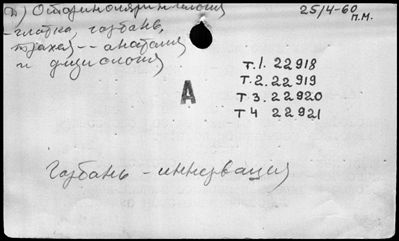 Д) Отоларингология 25/4-60
п.м.
- глотка, гортань,
трахея -- анатомия
и физиология
т.1. 22918
т.2. 22919
т 3. 22920
т 4 22921
А
Гортань - иннервация